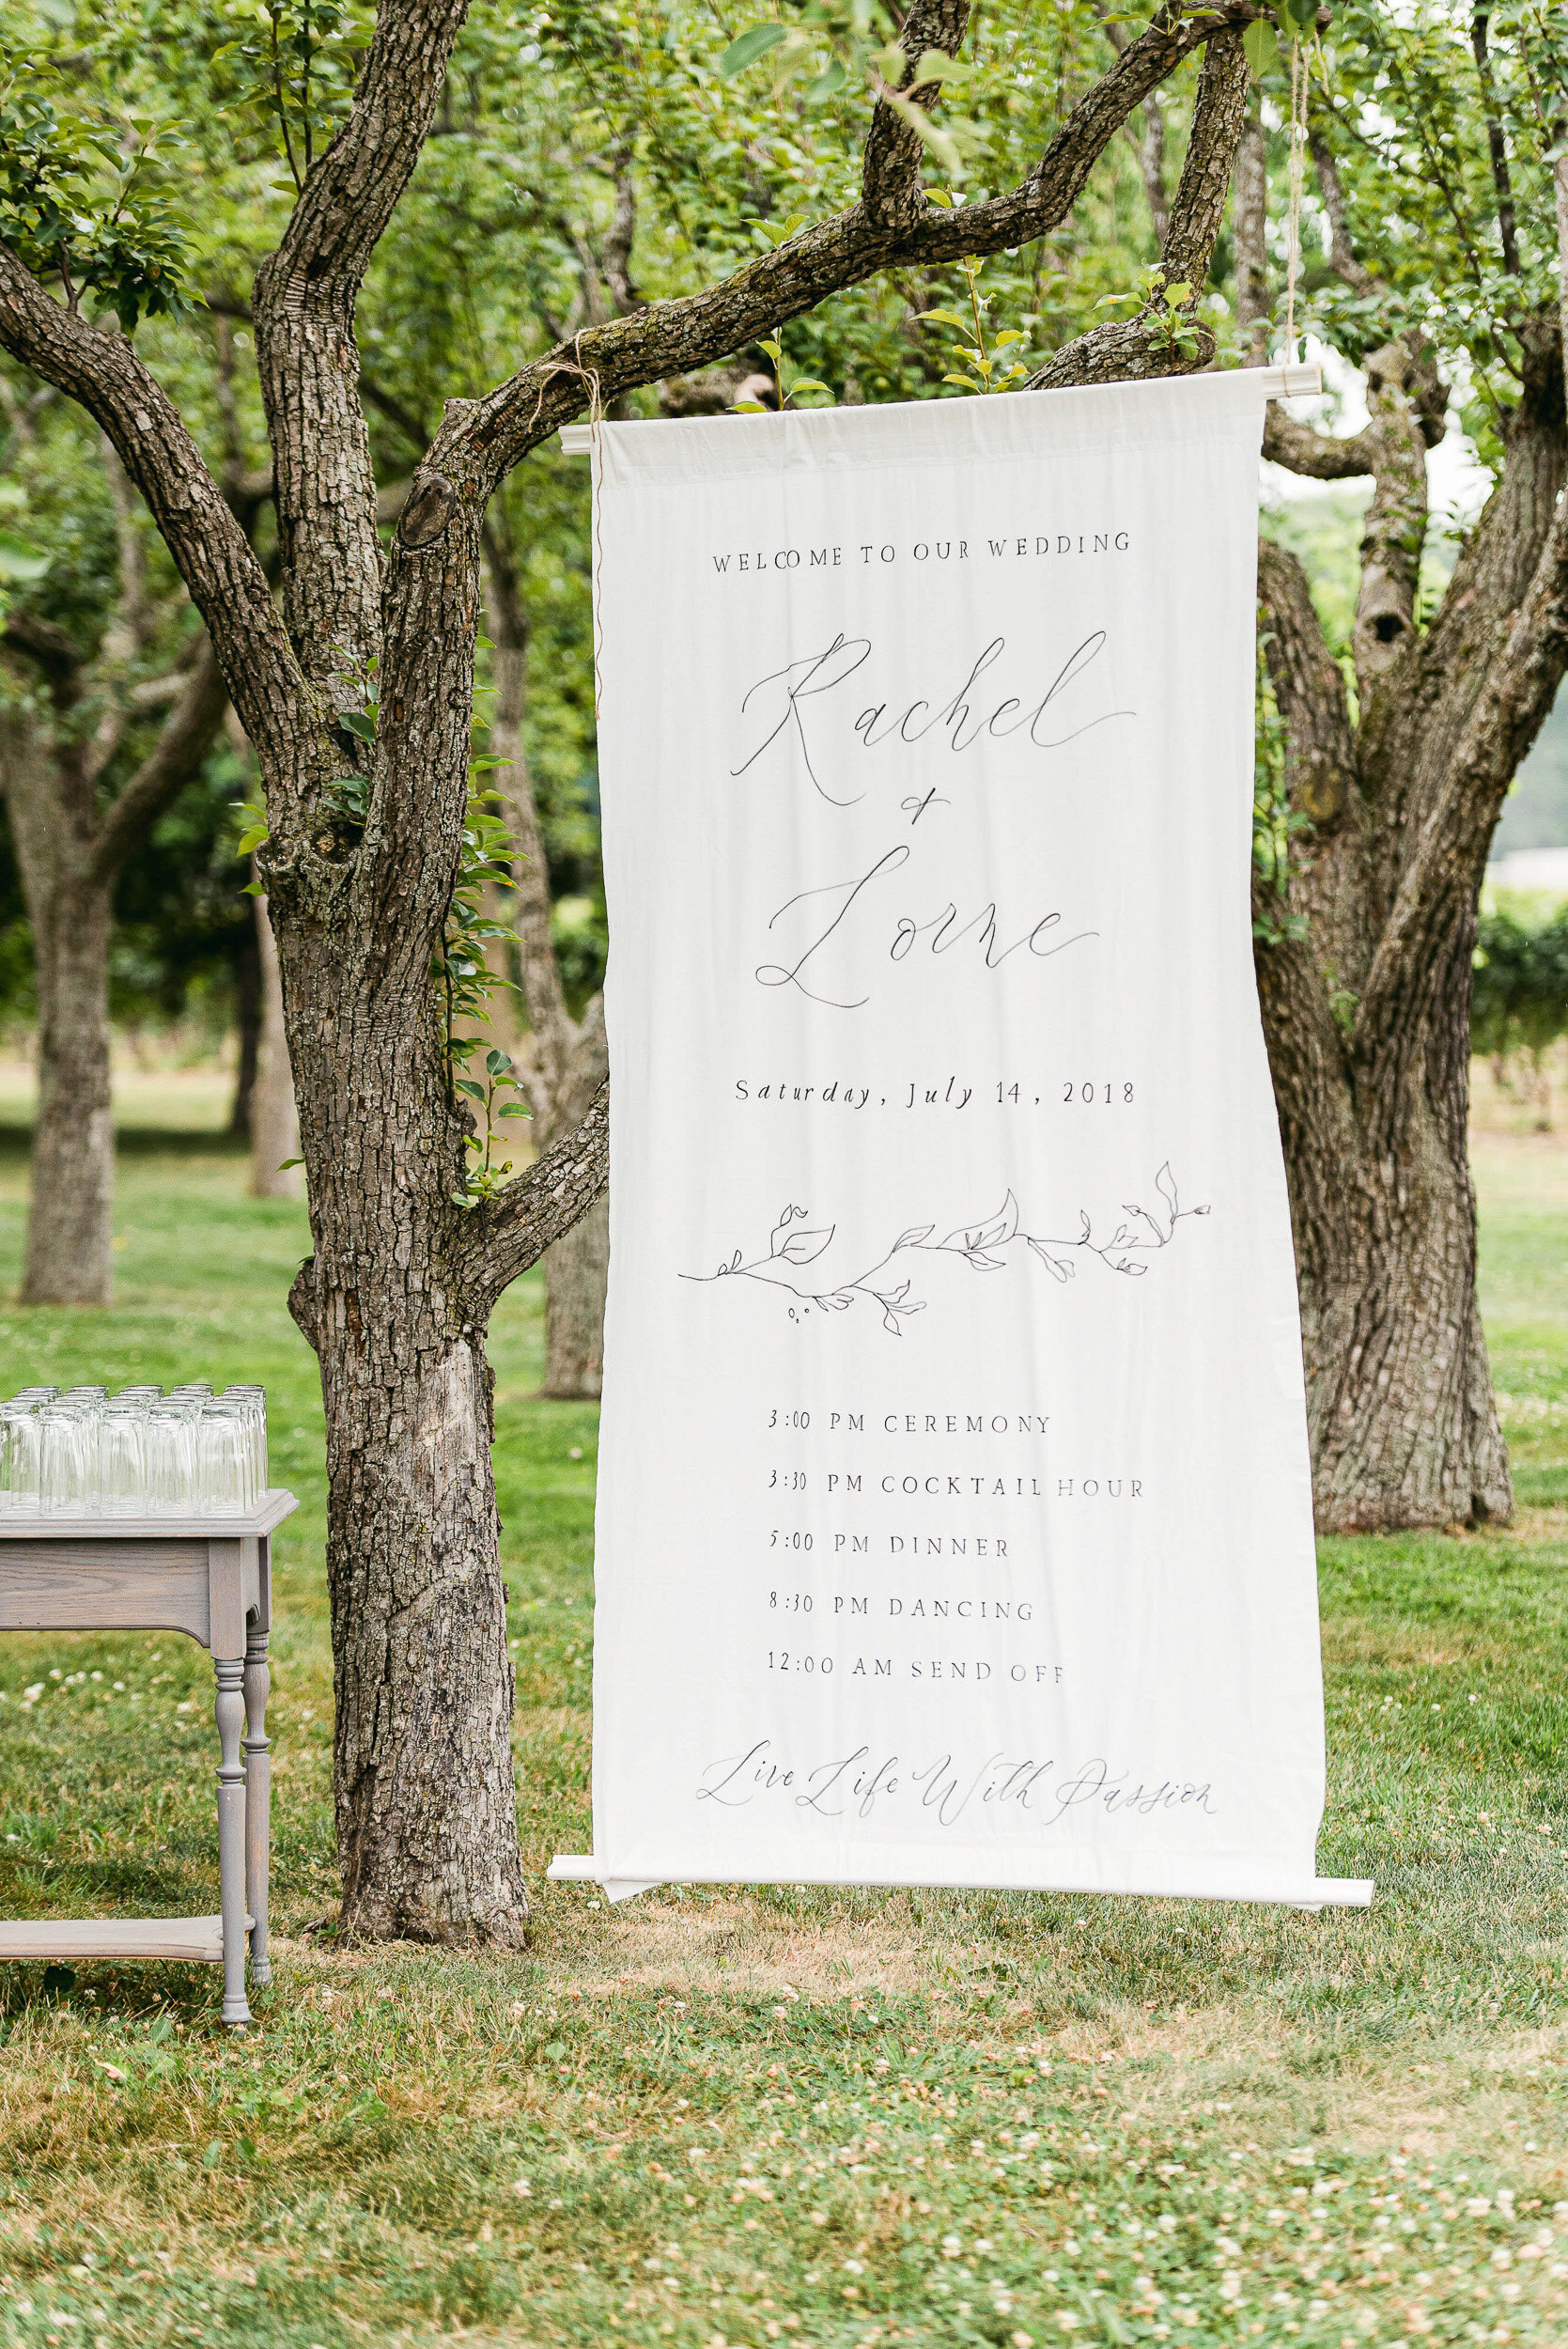 WELCOME TO OUR WEDDING
Rachel
+
Lorne
Saturday, July 14, 2018
3:00 PM CEREMONY
3:30 PM COCKTAIL HOUR
5:00 PM DINNER
8:30 PM DANCING
12:00 AM SEND OFF
Live Life With Passion